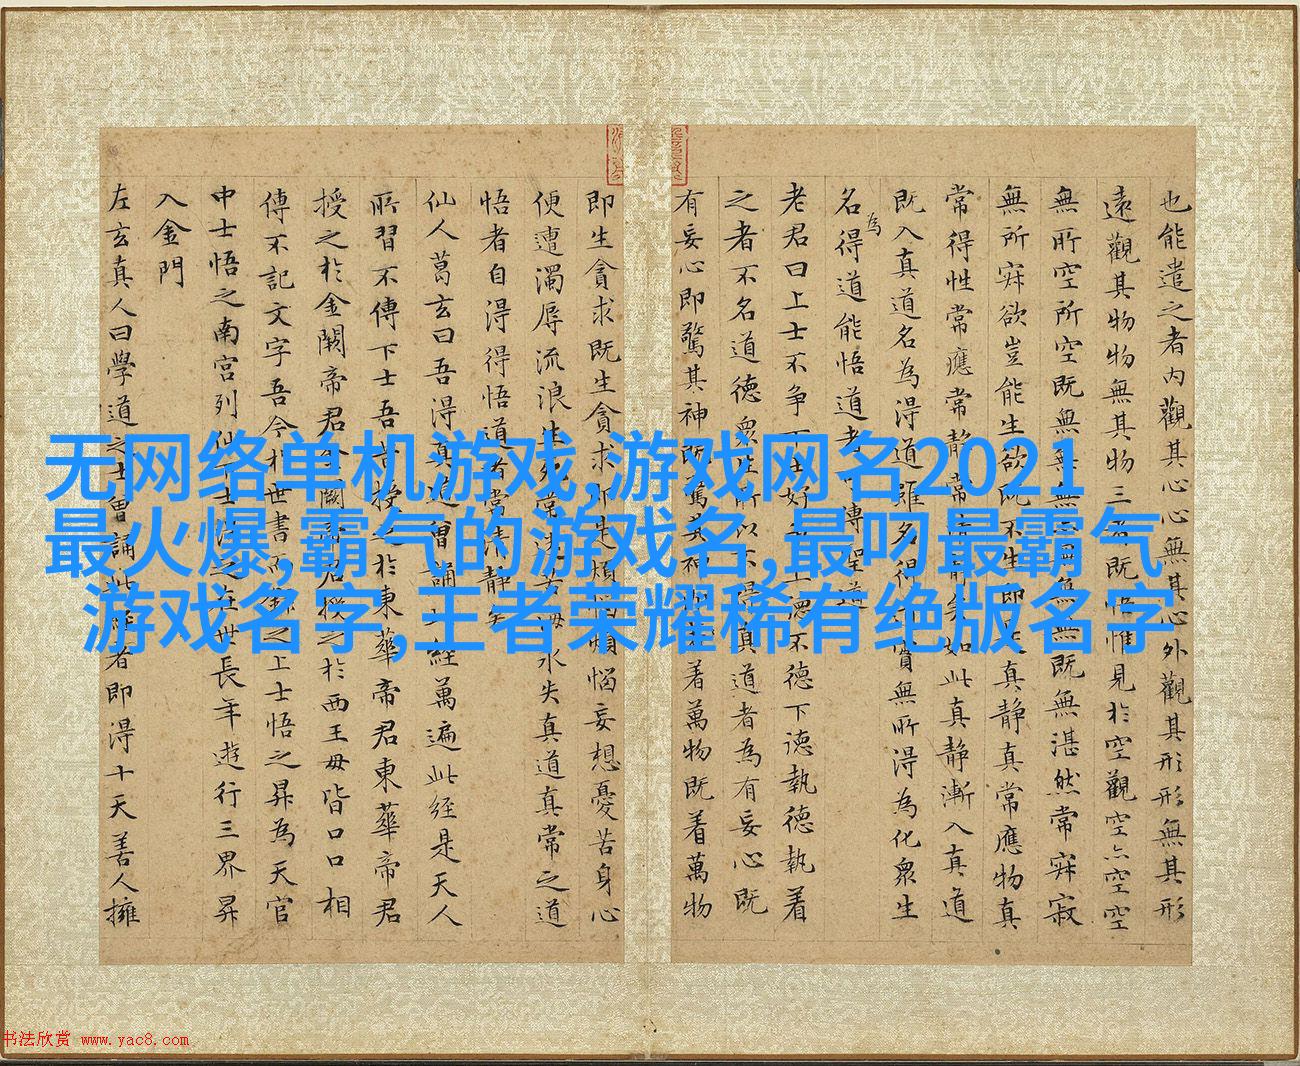 无网络单机游戏,游戏网名2021
最火爆,霸气的游戏名,最叼最霸气
游戏名字,王者荣耀稀有绝版名字
也能遣之者内觀其心心無其心外觀其形形無其形
遠觀其物物無其物三者既悟惟見於空觀空亦空空
無所空所空既無無無無無既無湛然常寂寂
無所寂欲豈能生欲既不生即是真静真常應物真
常得性常應常静常清静矣如此真静漸入真道
既入真道名為得道雖名得道實無所得為化衆生
名為得道能悟道者可傳聖道
老君曰上士不争下士好争上德不德下德執德執着
之者不名道德衆生所以不得真道者為有妄心既
有妄心即驚其神既驚其神即着萬物既着萬物
即生貪求既生貪求即是煩惱煩惱妄想憂苦身心
便遭濁辱流浪生死常沉苦海永失真道真常之道
悟者自得得悟道者常清静矣
仙人葛玄曰吾得真道曾誦此經萬遍此經是天人
所習不傳下士吾昔授之於東華帝君東華帝君
授之於金闕帝君金闕帝君授之於西王母皆口口相
傳不記文字吾今於世書而録之上士悟之昇為天官
中士悟之南宫列仙下士得之在世長年遊行三界昇
入金門
左玄真人曰學道之士曾誦此經者即得十天善人擁
书法欣赏 www.yac8.com